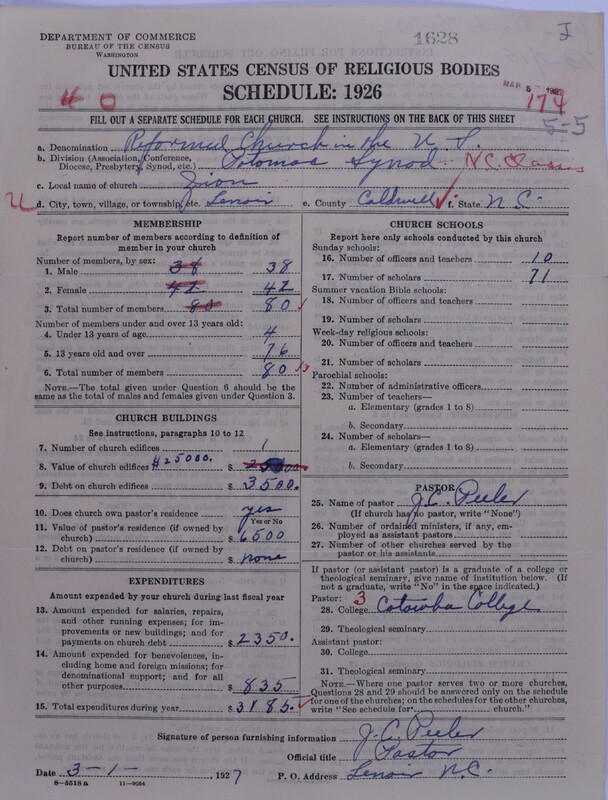 DEPARTMENT OF COMMERCE
BUREAU OF THE CENSUS
WASHINGTON
1628
UNITED STATES CENSUS OF RELIGIOUS BODIES
SCHEDULE: 1926
40
MAR 5
174
5-5
FILL OUT A SEPARATE SCHEDULE FOR EACH CHURCH. SEE INSTRUCTIONS ON THE BACK OF THIS SHEET
a. Denomination Reformed Church in the U S.
b. Division (Association, Conference, Diocese, Presbytery, Synod, etc.) Potomac Synod - N.C. Classis
c. Local name of church Zion
d. City, town, village, or township, etc. Lenoir e. County Caldwell f. State N C.
MEMBERSHIP
Report number of members according to definition of
member in your church
Number of members, by sex:
1. Male 38 38
2. Female 42 42
3. Total number of members 80 80
Number of members under and over 13 years old:
4. Under 13 years of age 4
5. 13 years old and over 76
6. Total number of members 80
NOTE.—The total given under Question 6 should be the
same as the total of males and females given under Question 3.
CHURCH BUILDINGS
See instructions, paragraphs 10 to 12
7. Number of church edifices 1
8. Value of church edifices #25000. $
9. Debt on church edifices $ 3500.
10. Does church own pastor's residence yes
Yes or No
11. Value of pastor's residence (if owned by
church) $ 6500
12. Debt on pastor's residence (if owned by
church) $ none
EXPENDITURES
Amount expended by your church during last fiscal year
13. Amount expended for salaries, repairs,
and other running expenses; for im-
provements or new buildings; and for
payments on church debt $ 2350.
14. Amount expended for benevolences,
including home and foreign missions; for
denominational support; and for all
other purposes $ 835
15. Total expenditures during year $ 3185.
CHURCH SCHOOLS
Report here only schools conducted by this church
Sunday schools:
16. Number of officers and teachers 10
17. Number of scholars 71
Summer vacation Bible schools:
18. Number of officers and teachers
19. Number of scholars
Week-day religious schools:
20. Number of officers and teachers
21. Number of scholars
Parochial schools:
22. Number of administrative officers
23. Number of teachers—
a. Elementary (grades 1 to 8)
b. Secondary
24. Number of scholars—
a. Elementary (grades 1 to 8)
b. Secondary
PASTOR
25. Name of pastor J. C. Peeler
(If church has no pastor, write "None")
26. Number of ordained ministers, if any, em-
ployed as assistant pastors
27. Number of other churches served by the
pastor or his assistants
If pastor (or assistant pastor) is a graduate of a college or
theological seminary, give name of institution below. (If
not a graduate, write "No" in the space indicated.)
Pastor: 3
28. College Catawba College
29. Theological seminary
Assistant pastor:
30. College
31. Theological seminary
NOTE.—Where one pastor serves two or more churches,
Questions 28 and 29 should be answered only on the schedule
for one of the churches; on the schedules for the other churches,
write "See schedule for church."
Signature of person furnishing information J. C. Peeler
Official title Pastor
Date 3-1-, 1927 P. O. Address Lenoir N.C.
8-5518 a 11-9034